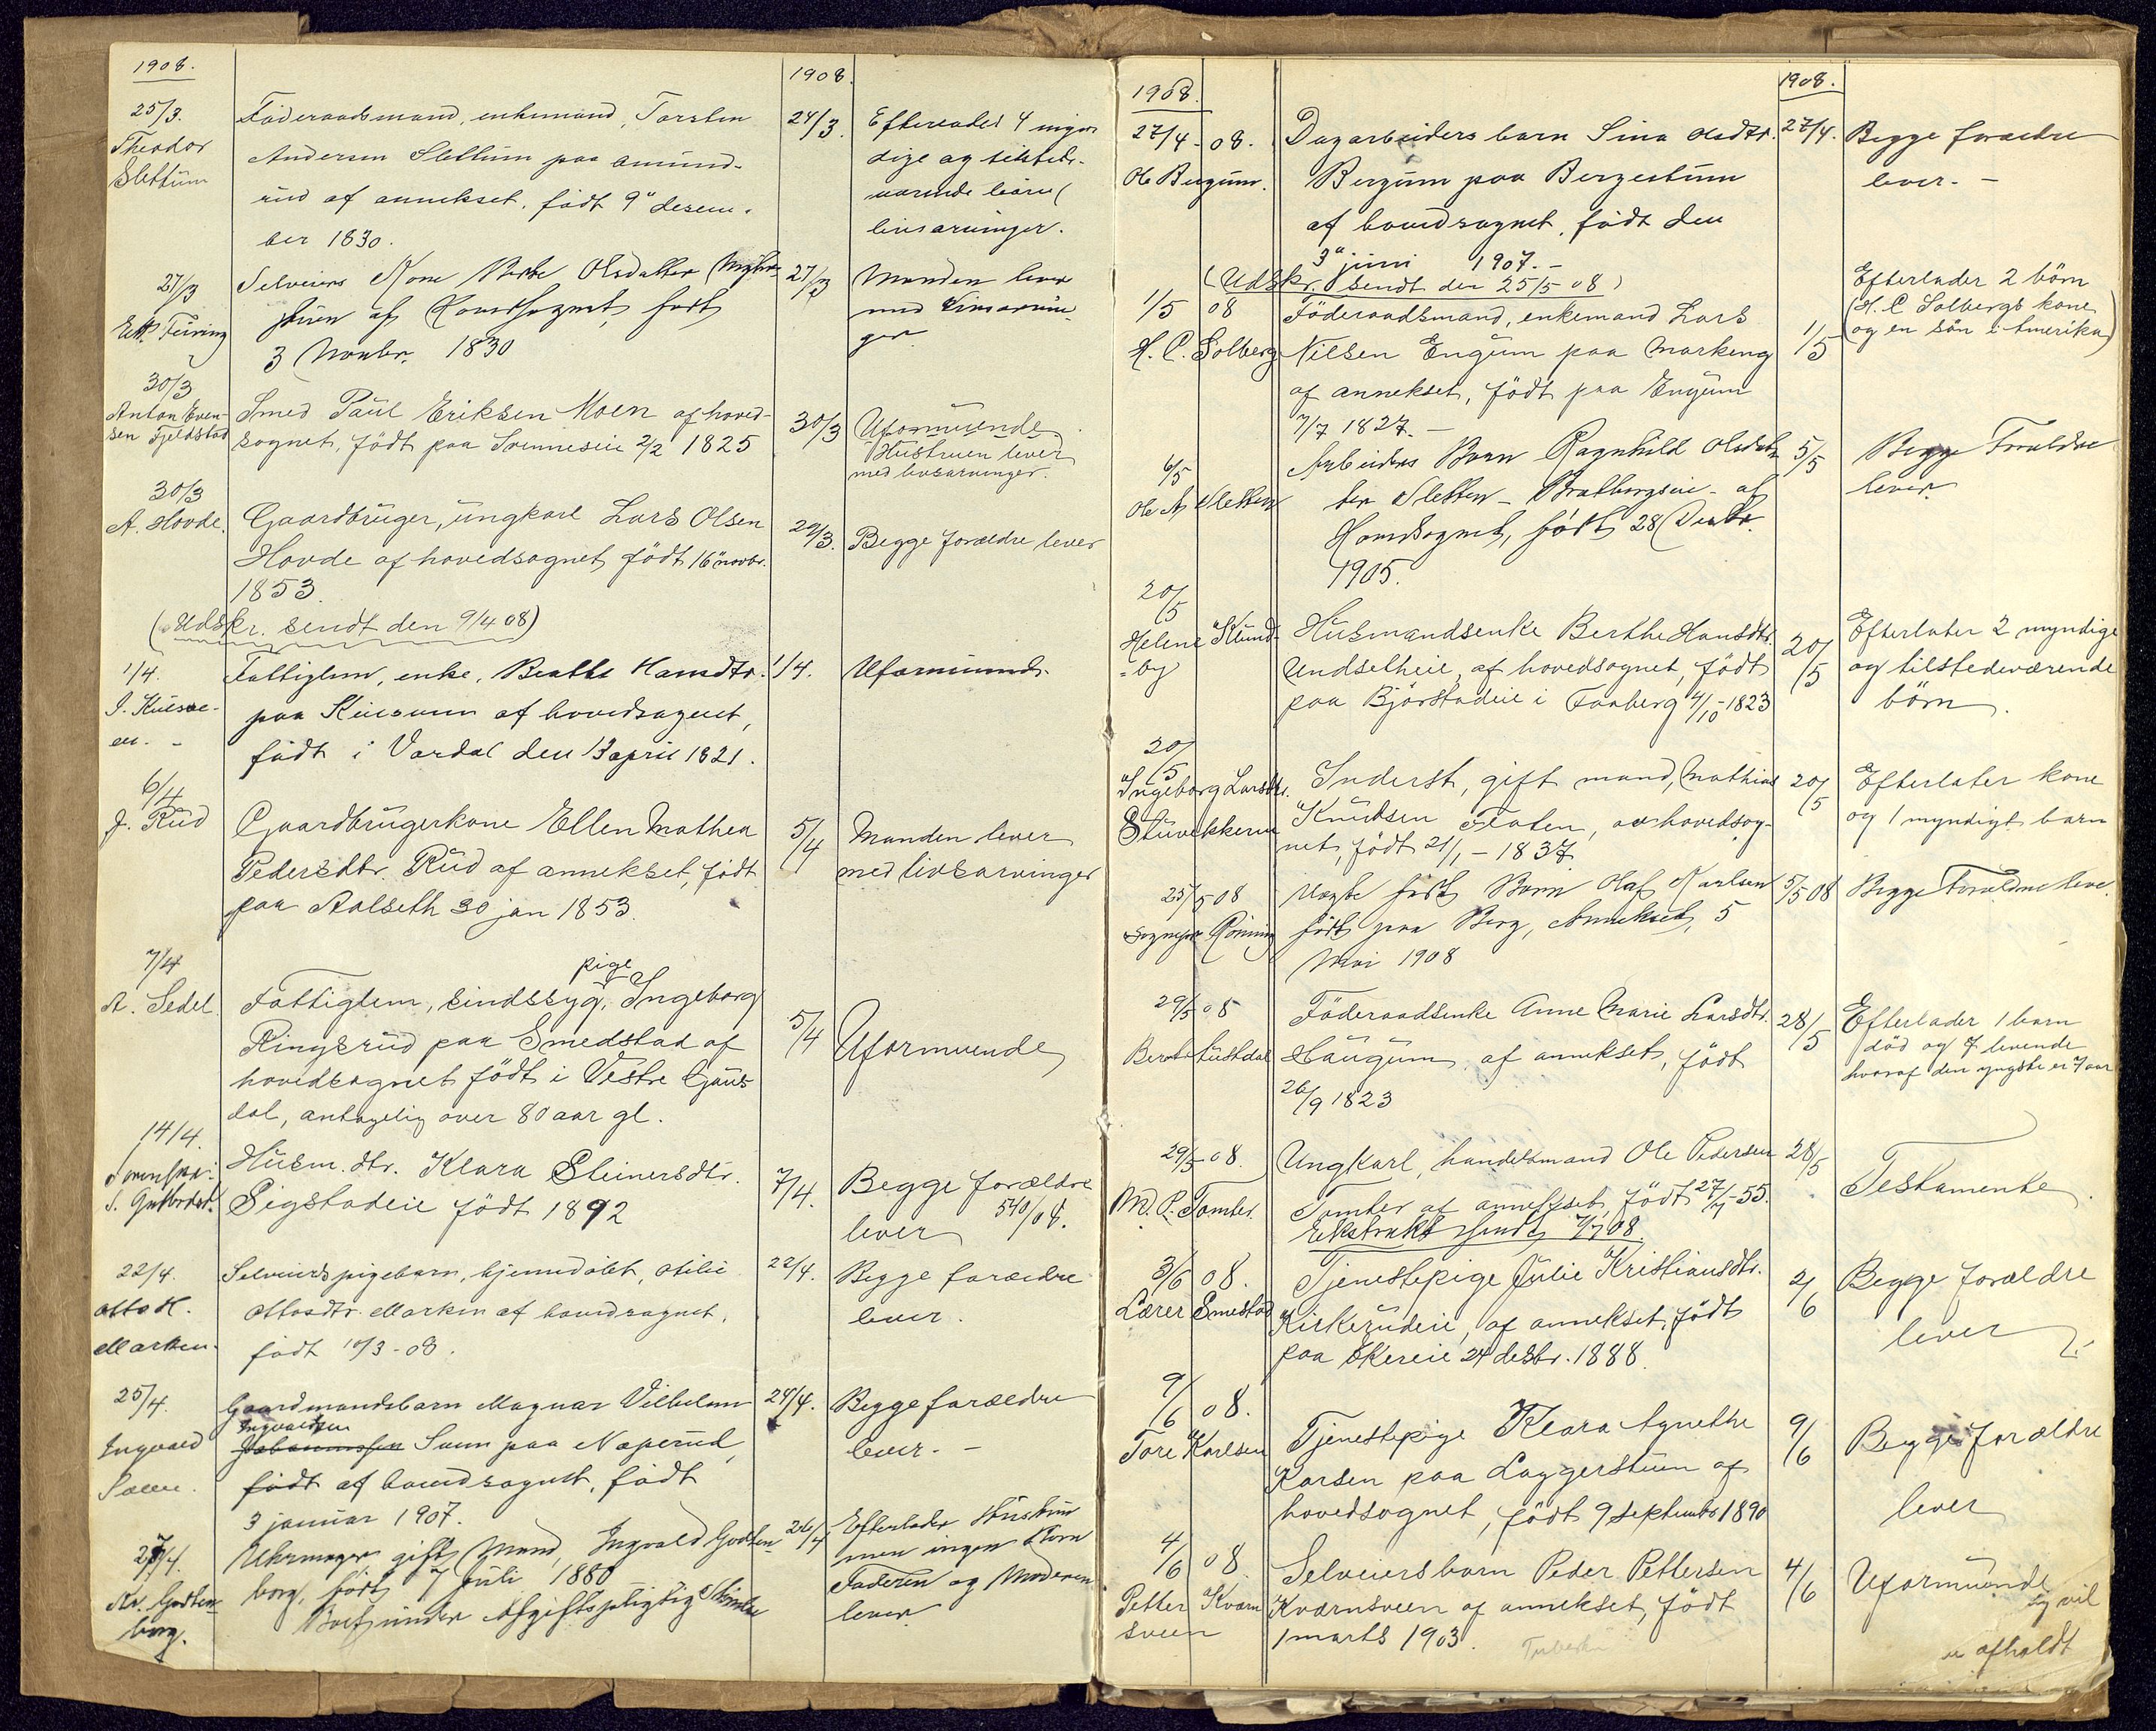 1908.
1908.
25/3.
Theodor
Slettum
Föderaadsmand, enkemand, Torsten
Andersen Slettum paa Amund-
rud af annekset, född 9de desem-
ber 1830.
24/3.
Efterlader 4 myn-
dige og tilstede-
værende
livsarvinger.
27/3
Selveiers Kone Olsdatter
af Hovedsognet, født
3 Novbr. 1830
27/3
Manden lever
med Livsarvin-
ger
30/3
Anton Even-
sen Fjeldstad
Smed Paul Eriksen Moen af hoved-
sognet, født paa Svennesein 2/2 1825
30/3
Uformuende
Hustruen lever
med livsarvinger.
30/3
A. Hovde.
Gaardbruger, ungkarl Lars Olsen
Hovde af hovedsognet, født 16" novbr.
1853.
29/3.
Begge forældre lever
(Udskr. sendt den 9/4 08)
1/4.
Fattiglem, enke, Beathe Hansdtr.
paa af hovedsognet,
født i Vardal den 13 april 1821.
1/4.
Uformuende
6/4
J. Rud
Gaardbrugerkone Ellen Mathea
Pedersdtr. Rud af annekset, født
paa Aalseth 30 jan 1853.
5/4
Manden lever
med livsarvinger
7/4
A. Sedel.
pige
Fattiglem, sindssyg, Ingeborg
Ringsrud paa Smedstad af
hovedsognet født i Vestre Gaus
dal, antagelig over 80 aar gl.
5/4
Uformuende
14/4.
Husm. dtr. Klara Steinersdtr.
Sigstadeie født 1892
7/4.
Begge forældre
lever 540/08.
22/4.
Otto H.
Marken.
Selveiers pigebarn, hjemmedøbt, Otilie
Ottosdtr. Marken af hovedsognet,
født 10/3-08.
22/4.
Begge forældre
lever.
25/4.
Ingvald
Gaardmandsbarn Magnar Vilhelm
Ingvaldsen
Johannessen paa Naperud,
født af hovedsognet, født
3 januar 1907.
24/4.
Begge forældre
lever. -
27/4.
Kr. Godten-
borg.
Uhrmager, gift Mand, Ingvald Godten-
borg, født 7 Juli 1880
Boet under Afgiftspligtig
26/4
Efterlader Hustru
men ingen Børn
Faderen og Moderen
lever
1908.
1908.
27/4-08.
Ole Bergum.
Dagarbeiders barn Sina Olsdtr.
Bergum paa Bergestuen
af hovedsognet, født den
3" juni 1907. -
(Udskr. sendt den 25/5 08)
27/4.
Begge forældre
lever. -
1/5 08
H. C. Solberg
Föderaadsmand, enkemand Lars
Nilsen Engum paa Markeng
af annekset, født paa Engum
7/7 1827. -
1/5
Efterlader 2 börn
(H. C. Solbergs kone
og en sön i Amerika)
6/5
Ole A. Sletten
Arbeiders Barn Ragnhild Olsdat-
ter Sletten - Bratbergseie - af
Hovedsognet, født 28 Decbr.
1905.
5/5
Begge Forældre
lever.
20/5
Helene Klund-
by
Husmandsenke Berthe Hansdtr.
Undsetheie, af hovedsognet, født
paa Björstadeie i Faaberg 4/10-1823
20/5
Efterlater 2 myndige
og tilstedeværende
börn.
20/5
Ingeborg Larsdtr.
Stuvekkerne
Inderst, gift mand, Mathias
Knudsen Flaten, av hovedsog-
net, født 21/1 - 1837
20/5
Efterlater kone
og 1 myndigt barn
25/5 08
Rönning
født Barn Olaf Karlsen
født paa Berg, Annekset, 5
Mai 1908
5/5 08
Begge Forældre lever.
29/5 08
Föderaadsenke Anne Marie Larsdtr.
Haugum, af annekset, født
26/9 1823
28/5
Efterlader 1 barn
död og 7 levende
hvoraf den yngste er 7 aar
29/5-08.
M. P. Tomter.
Ungkarl, handelsmand Ole Pedersen
Tomter af annekset, født 27/7-55.
Ekstrakt sendt 7/7 08.
28/5
Testamente.
3/6 08.
Lærer Smestad
Tjenestepige Julie Kristiansdtr.
Kirkerudeie, af annekset, født
paa Skereie 24 desbr. 1888.
2/6
Begge forældre
lever
9/6 08.
Tore Karlsen
Tjenestepige Klara Agnethe
Karsen paa Laggerstuen af
hovedsognet, født 9 septembr 1890
9/6
Begge forældre
lever
4/6 08
Petter Kværn
sveen
Selveiersbarn Peder Pettersen
Kværnsveen af annekset, født
1 marts 1903.
4/6
Uformuende